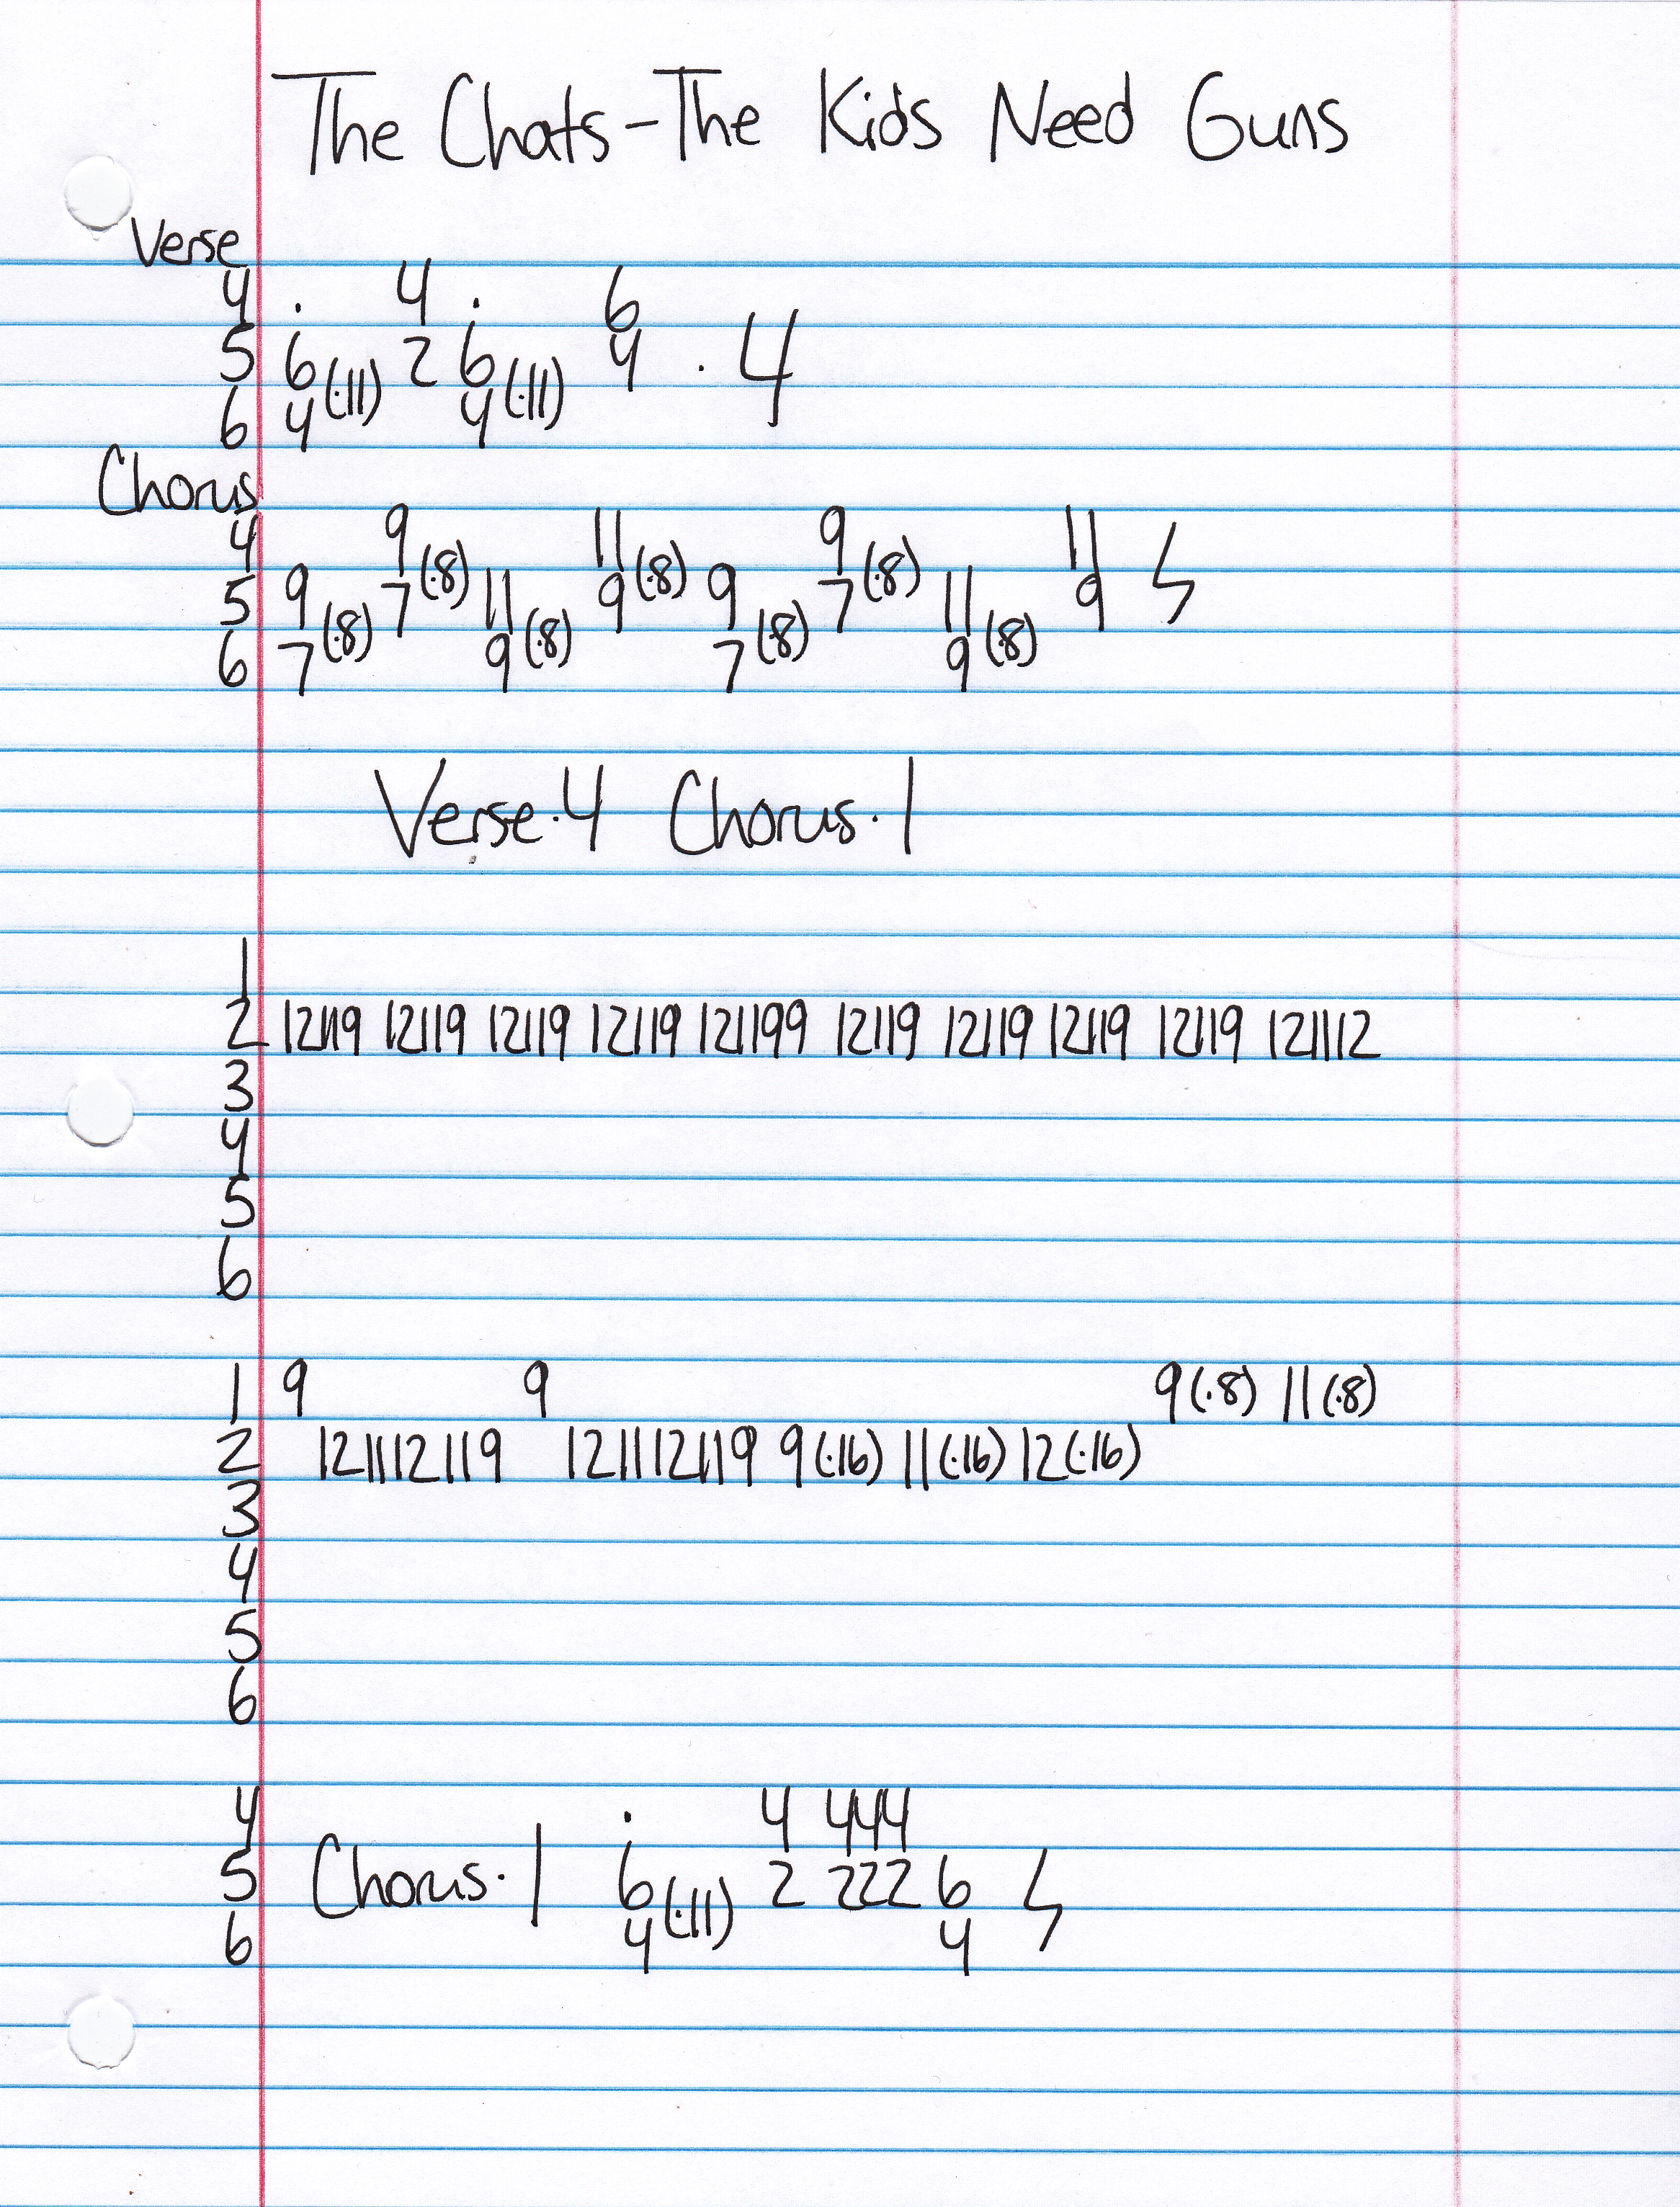 The Chats - The Kids Need Guns
Verse
4 . 4 . 6
5 6 (·11) 2 6 (·11) 4 · 4
6 4 4
Chorus
4 9 (·8) 11 (·8) 9 (·8) 11
5 9 7 11 9 9 7 11 9
6 7 (·8) 9 (·8) 7 (·8) 9 (·8)
Verse·4 Chorus·1
1
2 12119 12119 12119 12119 121199 12119 12119 12119 12119 121112
3
4
5
6
1 9 9 9(·8) 11(·8)
2 121112119 121112119 9(·16) 11(·16) 12(·16)
3
4
5
6
4 . 4 444
5 Chorus·1 6 (·11) 2 222 6
6 4 4